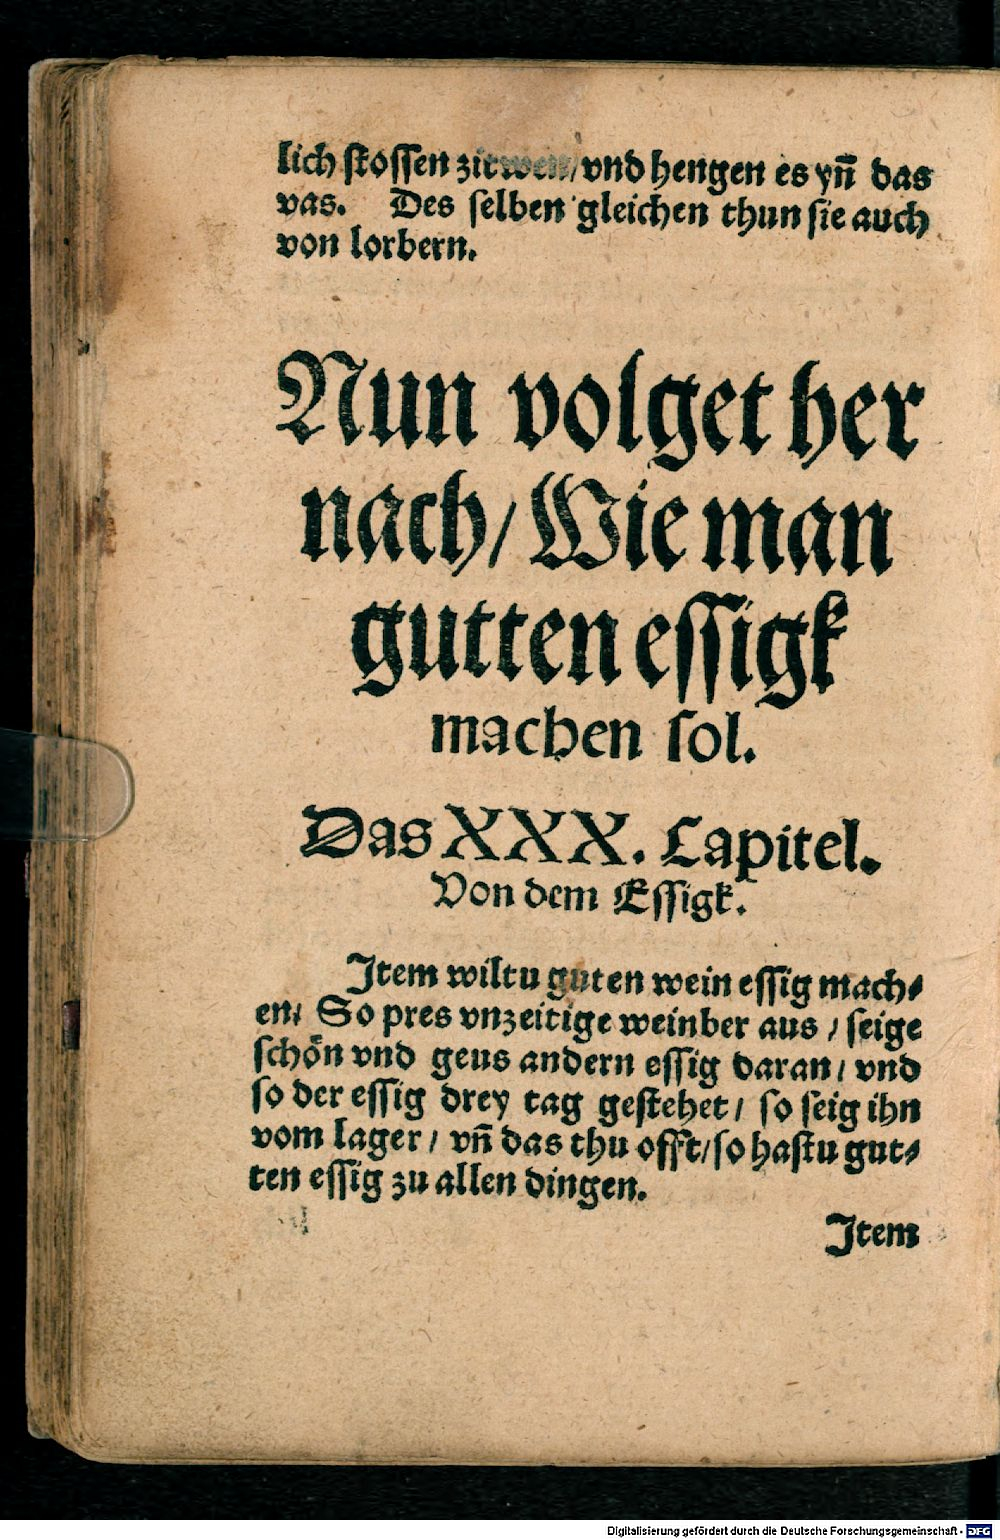 lich stossen zitwen/ vnd hengen es yn̄ das
vas. Des selben gleichen thun sie auch
von lorbern.
Nun volget her
nach/ Wie man
gutten essigk
machen sol.
Das XXX. Capitel.
Von dem Essigk.
Item wiltu guten wein essig mach⸗
en/ So pres vnzeitige weinber aus / seige
schön vnd geus andern essig daran/ vnd
so der essig drey tag gestehet/ so seig ihn
vom lager/ vn̄ das thu offt/ so hastu gut⸗
ten essig zu allen dingen.
Item
Digitalisierung gefördert durch die Deutsche Forschungsgemeinschaft - DFG